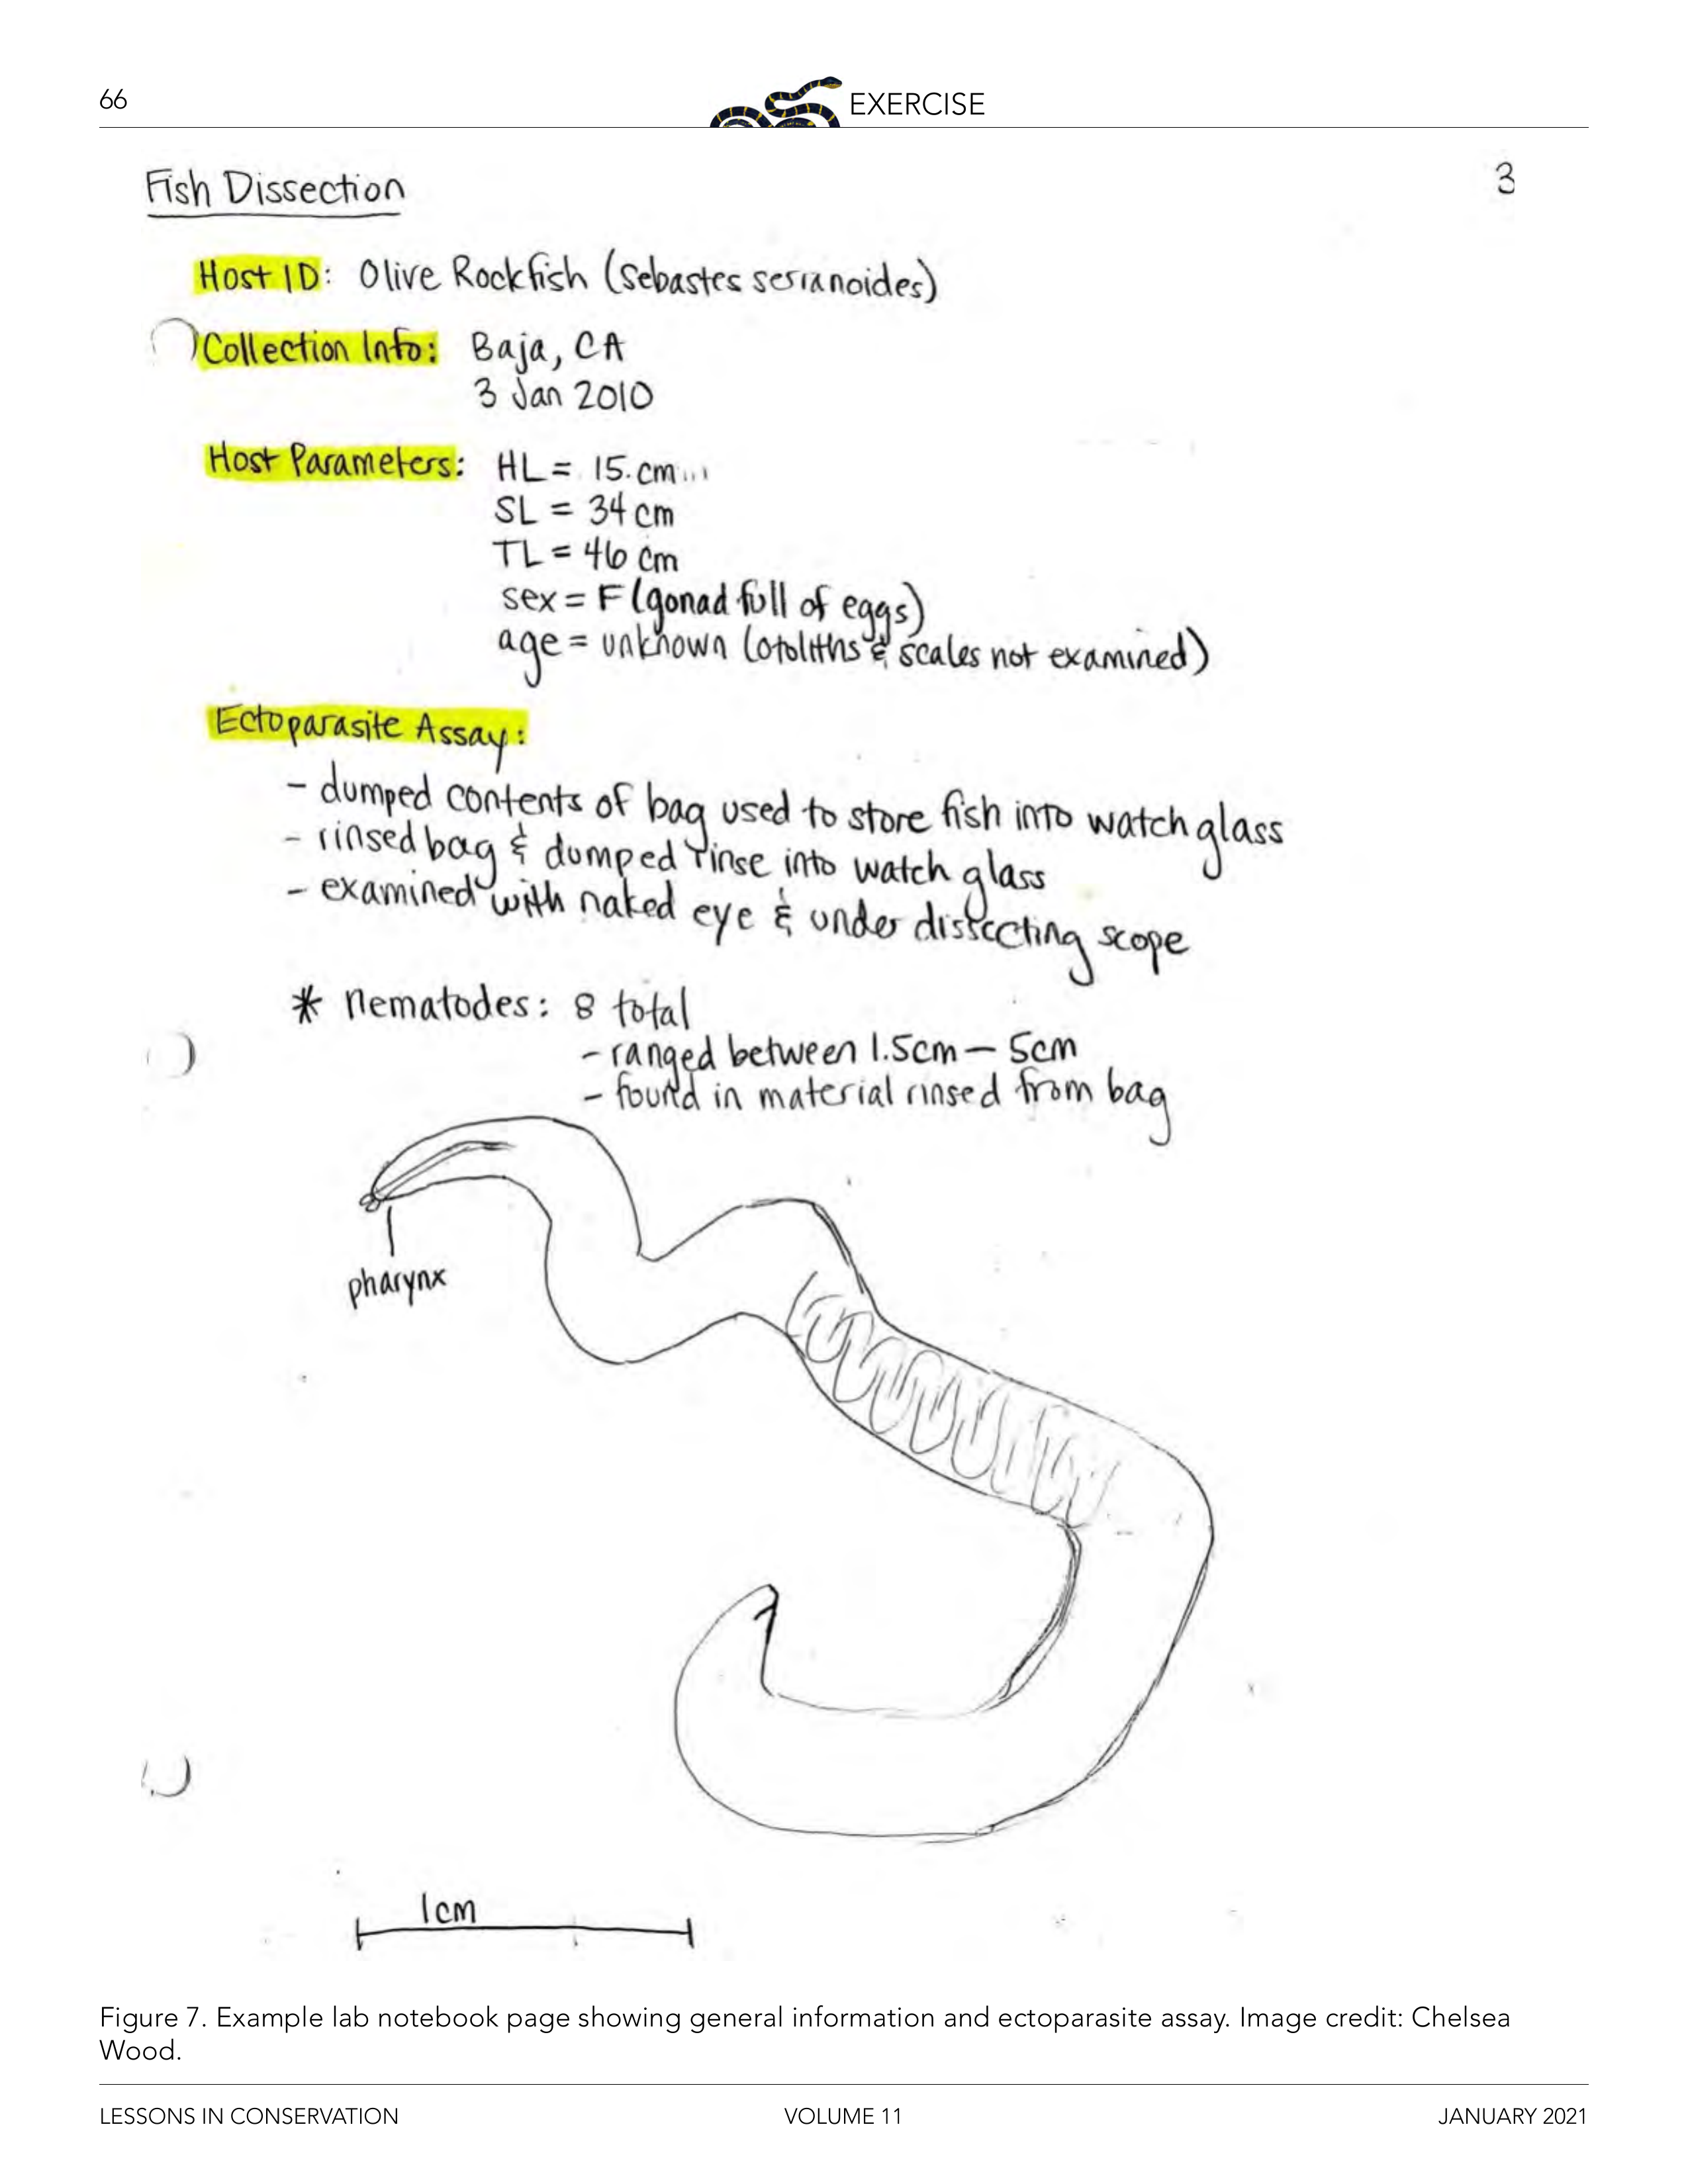 66
EXERCISE
Fish Dissection
3
Host ID: Olive Rockfish (Sebastes serranoides)
Collection Info: Baja, CA
3 Jan 2010
Host Parameters: HL = 15 cm
SL = 34 cm
TL = 46 cm
sex = F (gonad full of eggs)
age = unknown (otoliths & scales not examined)
Ectoparasite Assay:
- dumped contents of bag used to store fish into watch glass
- rinsed bag & dumped rinse into watch glass
- examined with naked eye & under dissecting scope
* nematodes: 8 total
- ranged between 1.5cm – 5cm
- found in material rinsed from bag
pharynx
1cm
Figure 7. Example lab notebook page showing general information and ectoparasite assay. Image credit: Chelsea
Wood.
LESSONS IN CONSERVATION
VOLUME 11
JANUARY 2021